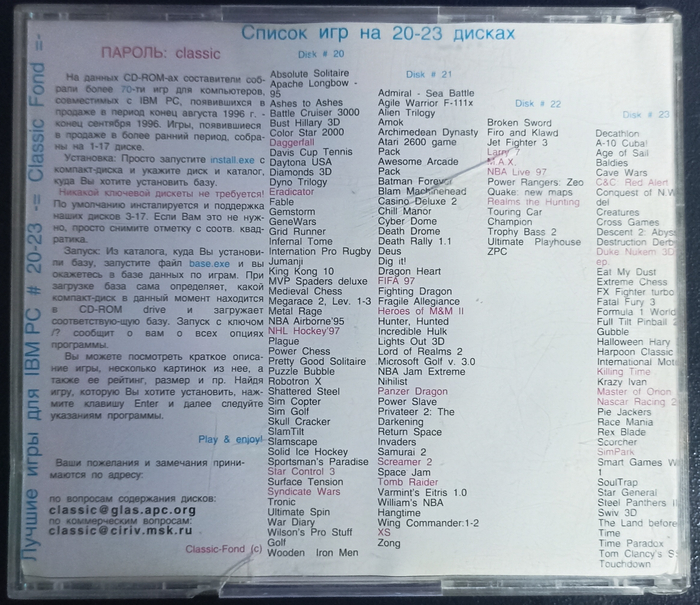 Лучшие игры для IBM PC # 20-23 -= Classic Fond =-
Список игр на 20-23 дисках
ПАРОЛЬ: classic
На данных CD-ROM-ах составители соб-
рали более 70-ти игр для компьютеров,
совместимых с IBM PC, появившихся в
продаже в период конец августа 1996 г. -
конец сентября 1996. Игры, появившиеся
в продаже в более ранний период, собра-
ны на 1-17 диске.
Установка: Просто запустите install.exe с
компакт-диска и укажите диск и каталог,
куда Вы хотите установить базу.
Никакой ключевой дискеты не требуется!
По умолчанию инсталируется и поддержка
наших дисков 3-17. Если Вам это не нуж-
но, просто снимите отметку с соотв. квад-
ратика.
Запуск: Из каталога, куда Вы установи-
ли базу, запустите файл base.exe и вы
окажетесь в базе данных по играм. При
загрузке база сама определяет, какой
компакт-диск в данный момент находится
в CD-ROM drive и загружает
соответствую-щую базу. Запуск с ключом
/? сообщит о вам о всех опциях
программы.
Вы можете посмотреть краткое описа-
ние игры, несколько картинок из нее, а
также ее рейтинг, размер и пр. Найдя
игру, которую Вы хотите установить, наж-
мите клавишу Enter и далее следуйте
указаниям программы.
Play & enjoy!
Ваши пожелания и замечания прини-
маются по адресу:
по вопросам содержания дисков:
classic@glas.apc.org
по коммерческим вопросам:
classic@ciriv.msk.ru
Classic-Fond (c)
Disk # 20
Absolute Solitaire
Apache Longbow -
95
Ashes to Ashes
Battle Cruiser 3000
Bust Hillary 3D
Color Star 2000
Daggerfall
Davis Cup Tennis
Daytona USA
Diamonds 3D
Dyno Trilogy
Eradicator
Fable
Gemstorm
GeneWars
Grid Runner
Infernal Tome
Internation Pro Rugby
Jumanji
King Kong 10
MVP Spaders deluxe
Medieval Chess
Megarace 2, Lev. 1-3
Metal Rage
NBA Airborne'95
NHL Hockey'97
Plague
Power Chess
Pretty Good Solitaire
Puzzle Bubble
Robotron X
Shattered Steel
Sim Copter
Sim Golf
Skull Cracker
SlamTilt
Slamscape
Solid Ice Hockey
Sportsman's Paradise
Star Control 3
Surface Tension
Syndicate Wars
Tronic
Ultimate Spin
War Diary
Wilson's Pro Stuff
Golf
Wooden Iron Men
Disk # 21
Admiral - Sea Battle
Agile Warrior F-111x
Alien Trilogy
Amok
Archimedean Dynasty
Atari 2600 game
Pack
Awesome Arcade
Pack
Batman Forever
Blam Machinehead
Casino Deluxe 2
Chill Manor
Cyber Dome
Death Drome
Death Rally 1.1
Deus
Dig it!
Dragon Heart
FIFA 97
Fighting Dragon
Fragile Allegiance
Heroes of M&M II
Hunter, Hunted
Incredible Hulk
Lights Out 3D
Lord of Realms 2
Microsoft Golf v. 3.0
NBA Jam Extreme
Nihilist
Panzer Dragon
Power Slave
Privateer 2: The
Darkening
Return Space
Invaders
Samurai 2
Screamer 2
Space Jam
Tomb Raider
Varmint's Eitris 1.0
William's NBA
Hangtime
Wing Commander:1-2
XS
Zong
Disk # 22
Broken Sword
Firo and Klawd
Jet Fighter 3
Larry 7
M.A.X.
NBA Live 97
Power Rangers: Zeo
Quake: new maps
Realms the Hunting
Touring Car
Champion
Trophy Bass 2
Ultimate Playhouse
ZPC
Disk # 23
Decathlon
A-10 Cuba!
Age of Sail
Baldies
Cave Wars
C&C: Red Alert
Conquest of N.W
del
Creatures
Cross Games
Descent 2: Abys
Destruction Derb
Duke Nukem 3D
ep.
Eat My Dust
Extreme Chess
FX Fighter turbo
Fatal Fury 3
Formula 1 World
Full Tilt Pinball 2
Gubble
Halloween Hary
Harpoon Classic
International Moto
Killing Time
Krazy Ivan
Master of Orion
Nascar Racing 2
Pie Jackers
Race Mania
Rex Blade
Scorcher
SimPark
Smart Games W
1
SoulTrap
Star General
Steel Panthers I
Swiv 3D
The Land before
Time
Time Paradox
Tom Clancy's S
Touchdown